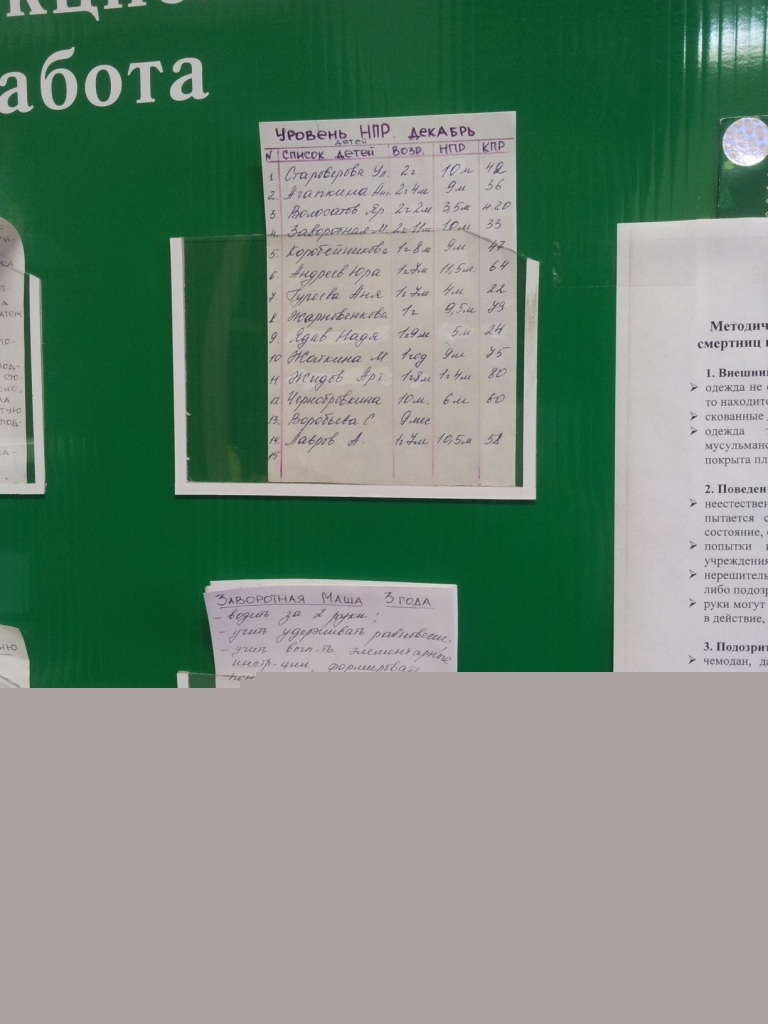 абота
УРОВЕНЬ НПР. ДЕКАБРЬ
детей
N СПИСОК ДЕТЕЙ ВОЗР. НПР КПР
1. Староверова Ул. 2г 10м 42
2. Агапкина Ан. 2г4м 9м 36
3 Волосатов Яр. 2г2м 3,5м 20
4. Заворотная М. 2г11м 10м 33
5. Коробейникова 1г8м 9м 47
6. Андреев Юра 1г7м 11,5м 64
7. Гуреева Аня 1г7м 4м 22
8 Жарновенкова 1г 9,5м 79
9. Ядав Надя 1г9м 5м 24
10 Жаткина М 1год 9м 75
11 Жидов Арт. 1г8м 1г4м 80
12 Чернобровкина 10м. 6м 60
13. Воробьева С. 9мес
14. Лавров А. 1г7м 10,5м 58
15
ЗАВОРОТНАЯ МАША 3 ГОДА
- водить за 2 руки;
- учить удерживать равновесие.
- учить вып-ть элементарные
инстр-ции, формировать
Методич
смертниц
1. Внешни
одежда не
то находитс
скованные
одежда
мусульманс
покрыта пл
2. Поведен
неестествен
пытается с
состояние,
попытки
учреждения
нерешитель
либо подозр
руки могут
в действие,
3. Подозрит
чемодан, да